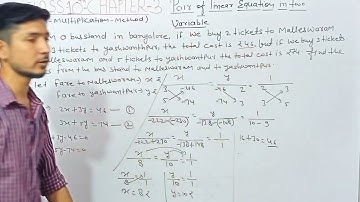 CHAPTER-3 Pair of linear Equation in two
Variable
MULTIPLICATION-method)
a busstand in bangalore, if we buy 2 tickets to Malleswaram
3 tickets to yashwanthpur, the total cost is ₹46, but if we buy 3 tickets
Malleswaram and 5 tickets to yashwanthpur the total cost is ₹74. find the
from the bus stand to Malleswaram and to yashwanthpur.
fare to Malleswaram, x ₹
fare to yashwanthpur = y ₹
2x+3y=46 — ①
3x+5y=74 — ②
3y-46=0
5y-74=0
x y 1
3 -46 2 3
5 -74 3 5
x y 1
-222-(-230) -138-(-148) 10-9
x/8 = y/10 = 1/1
x/8 = 1/1 y/10 = 1/1
x=8₹ y=10₹
16+30=46